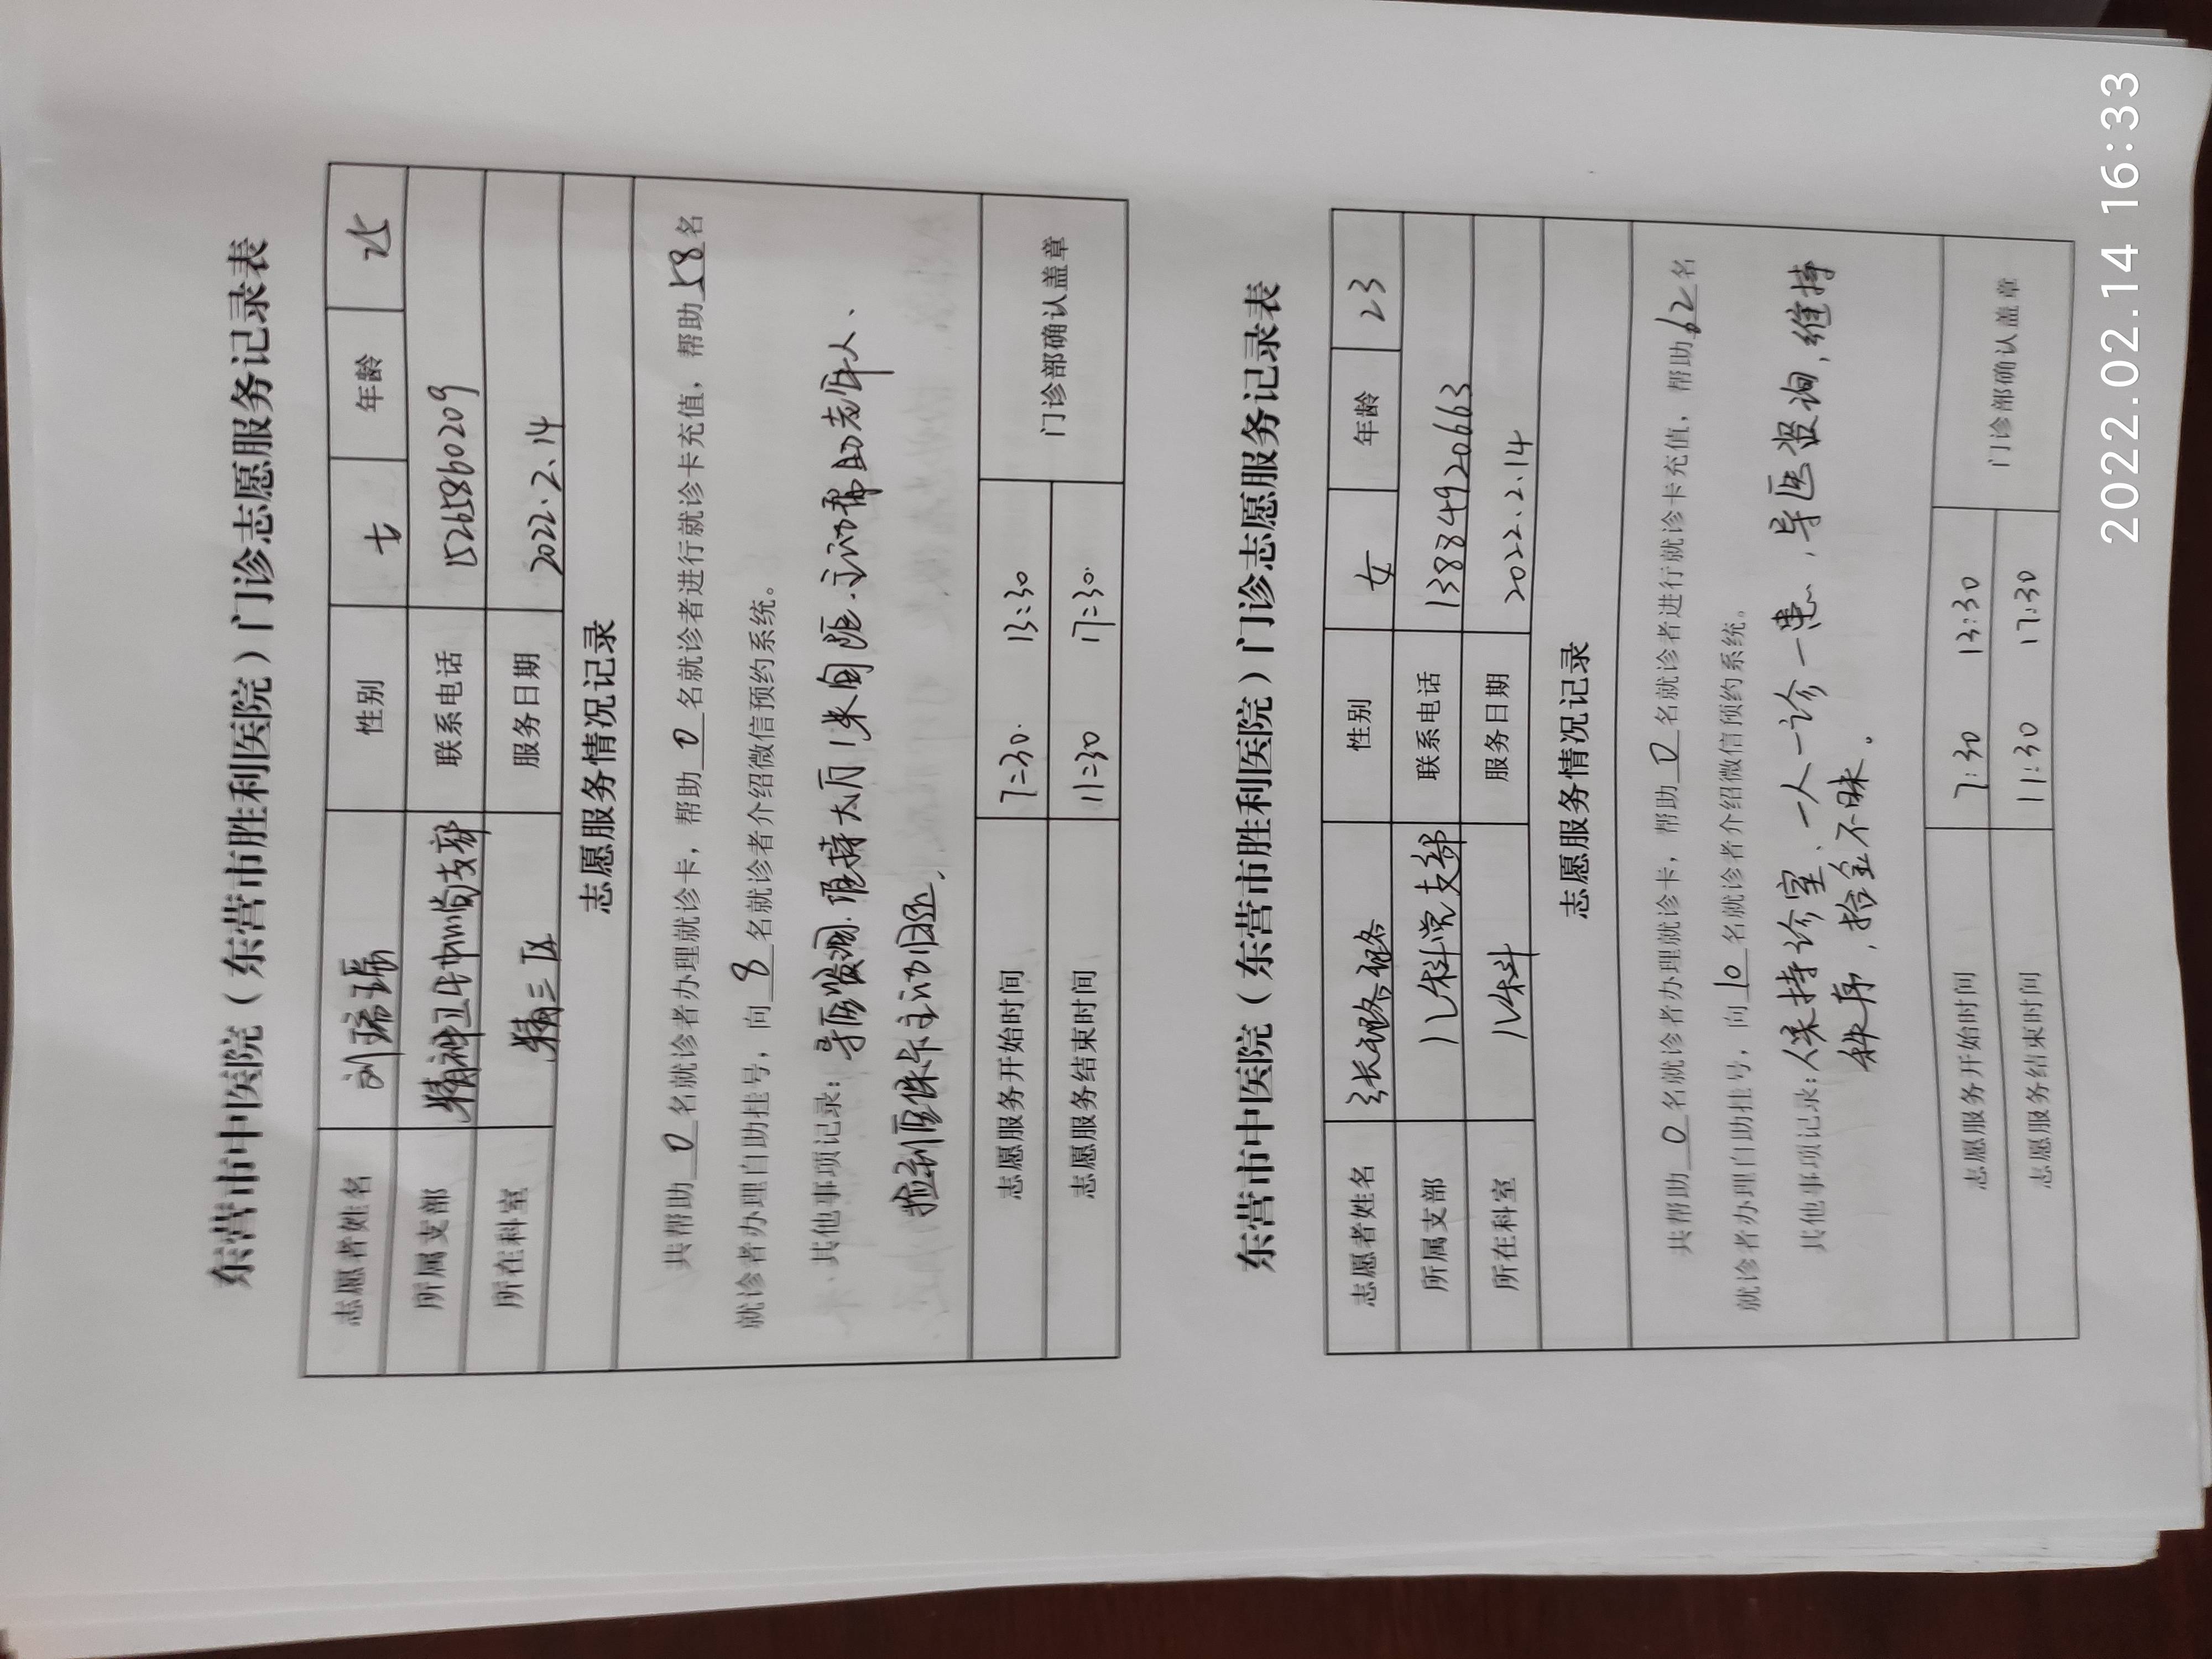 东营市中医院（东营市胜利医院）门诊志愿服务记录表
志愿者姓名 刘瑞瑶 性别 女 年龄 25
所属支部 精神卫生中心党支部 联系电话 15265860209
所在科室 精三区 服务日期 2022.2.14
志愿服务情况记录
共帮助 0 名就诊者办理就诊卡，帮助 0 名就诊者进行就诊卡充值，帮助 58 名
就诊者办理自助挂号，向 8 名就诊者介绍微信预约系统。
其他事项记录：导医咨询.维持大厅1米间距.主动帮助老年人、
捡到医保卡主动归还.
志愿服务开始时间 7:30. 13:30 门诊部确认盖章
志愿服务结束时间 11:30 17:30.
东营市中医院（东营市胜利医院）门诊志愿服务记录表
志愿者姓名 张璐璐 性别 女 年龄 23
所属支部 儿科党支部 联系电话 13884920663
所在科室 儿科 服务日期 2022.2.14
志愿服务情况记录
共帮助 0 名就诊者办理就诊卡，帮助 0 名就诊者进行就诊卡充值，帮助 62 名
就诊者办理自助挂号，向 10 名就诊者介绍微信预约系统。
其他事项记录：保持诊室、一人一诊一患，导医咨询，维持
秩序，拾金不昧。
志愿服务开始时间 7:30 13:30 门诊部确认盖章
志愿服务结束时间 11:30 17:30
2022.02.14 16:33